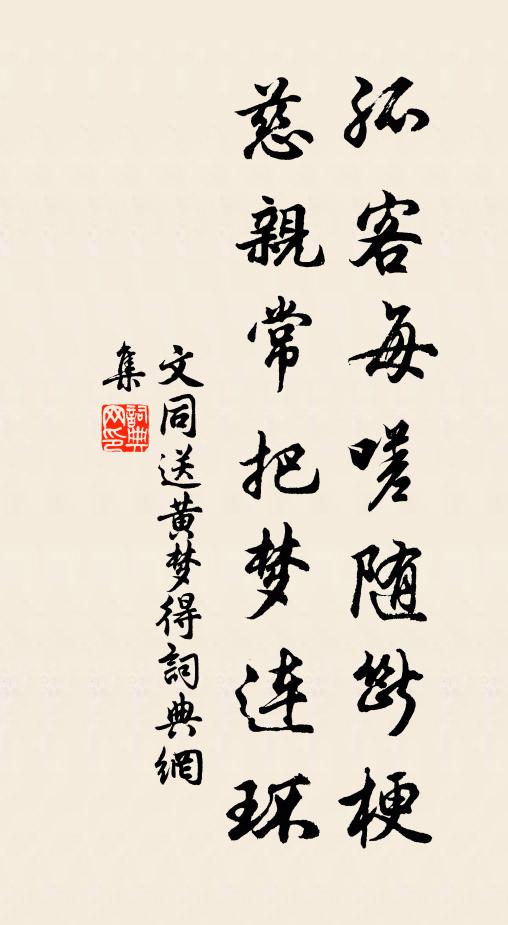 孤客每嗟随断梗
慈親常把梦连环
文同送黄梦得詞典網
集
詞典网印